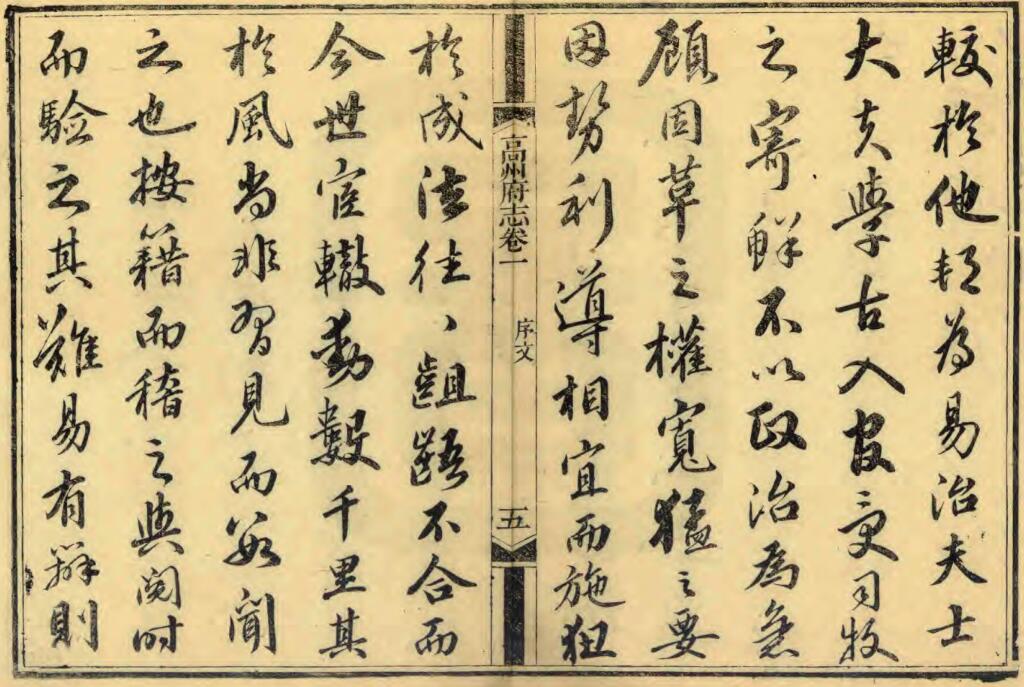 較於他郡為易治夫士
大夫學古入官受司牧
之寄鮮不以政治為急
顧因革之權寬猛之要
因勢利導相宜而施狃
高州府志卷一 序文 五
於成法往、齟齬不合而
今世宦轍動數千里其
於風尚非習見而聞
之也按籍而稽之與閱時
而驗之其難易有辨則